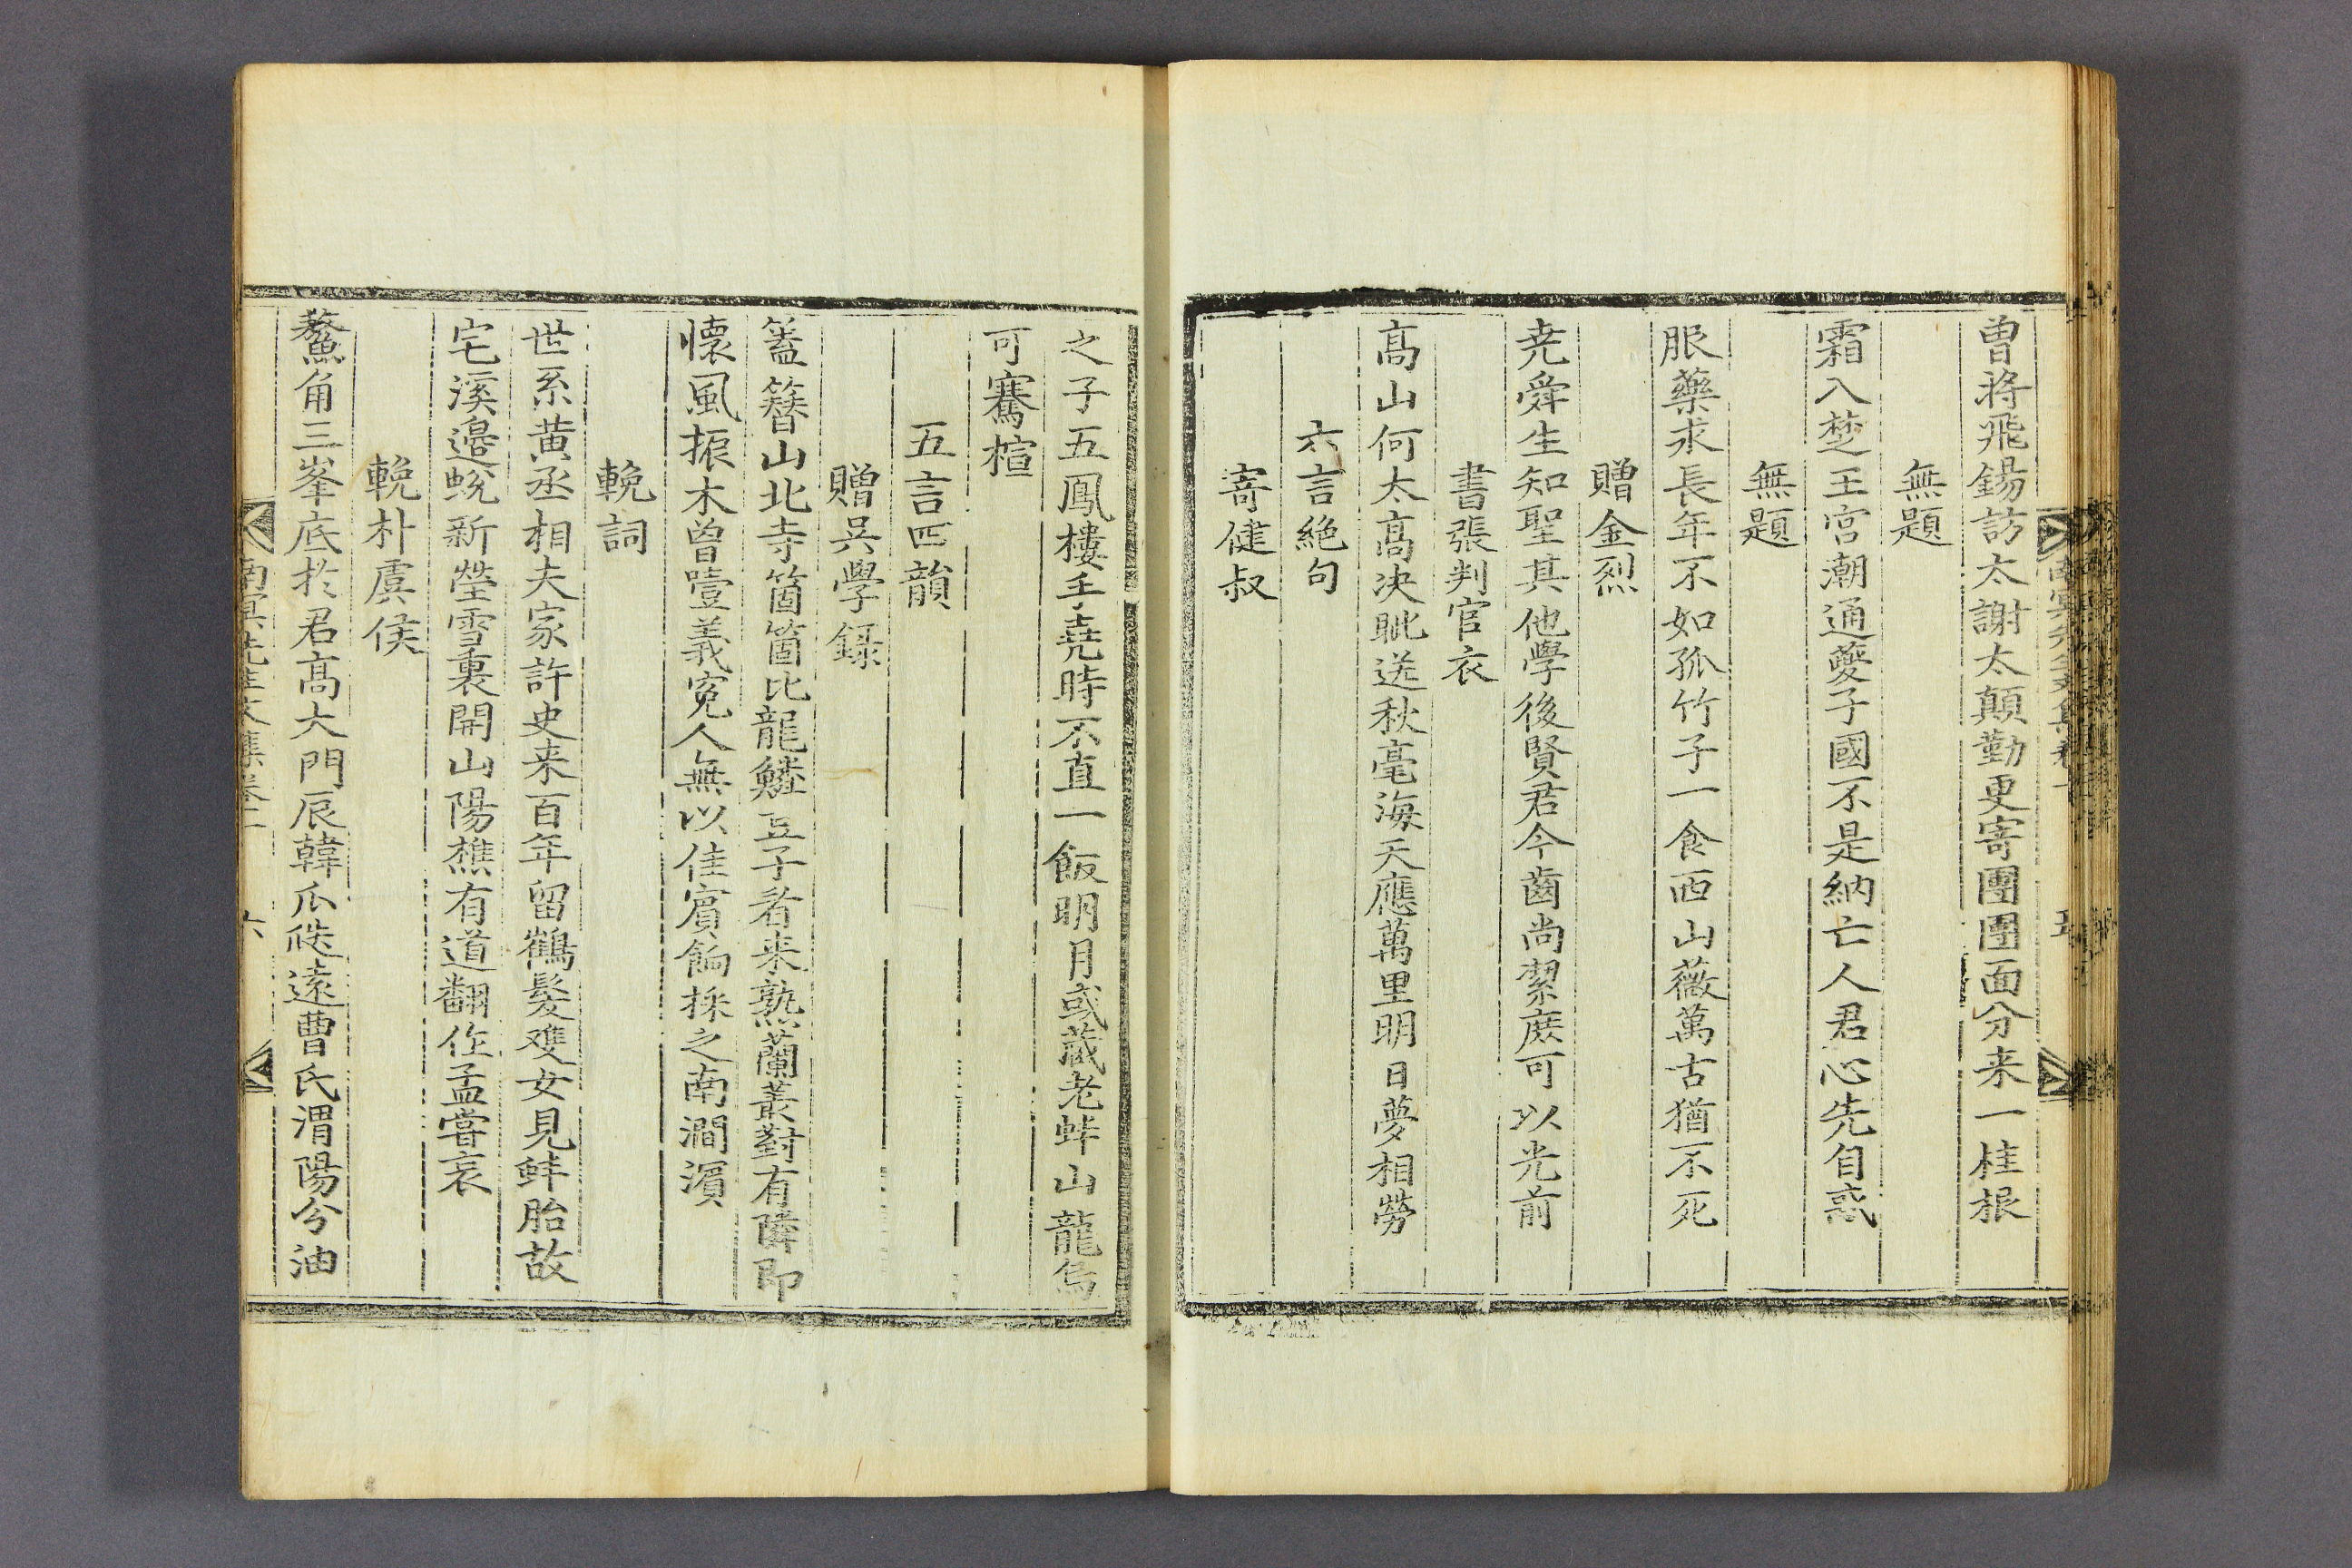 曽将飛錫訪太謝太顛勤更寄團團面分来一桂根
無題
霜入楚王宫潮通夔子國不是納亡人君心先自惑
無題
服藥求長年不如孤竹子一食西山薇萬古猶不死
贈金烈
尭舜生知聖其他學後賢君今齒尚潔庻可以光前
書張判官衣
髙山何太髙决眦送秋毫海天應萬里明日夢相勞
六言絶句
寄健叔
之子五鳳樓手堯時不直一飯明月或蔵老蚌山龍烏
可騫楦
五言四韻
贈呉學録
盖簪山北寺箇箇比龍鱗豆子看来熟蘭叢對有隣即
懐風振木曽噎義寃人無以佳賓餉採之南澗濵
輓詞
世系黄丞相夫家許史来百年留鶴髮雙女見蚌胎故
宅溪邉蛻新塋雪裏開山陽樵有道翻作孟嘗哀
輓朴虞侯
鰲角三峯底於君髙大門辰韓瓜瓞遠曹氏渭陽分油
南冥先生文集卷之一
六